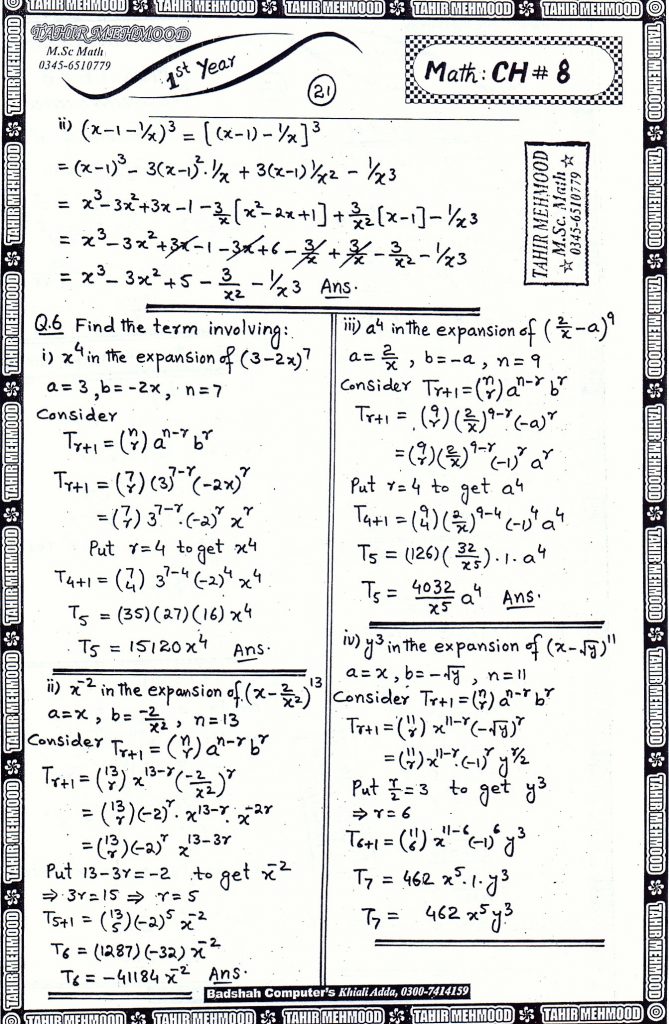 TAHIR MEHMOOD TAHIR MEHMOOD TAHIR MEHMOOD TAHIR MEHMOOD TAHIR MEHMOOD
TAHIR MEHMOOD
M.Sc Math
0345-6510779
1st Year
21
Math: CH # 8
ii) (x-1-1/x)³ = [(x-1)-1/x]³
= (x-1)³ - 3(x-1)²·1/x + 3(x-1)1/x² - 1/x3
= x³-3x²+3x-1-3/x[x²-2x+1]+3/x²[x-1]-1/x3
= x³-3x²+3x-1-3x+6-3/x+3/x-3/x²-1/x3
= x³-3x²+5-3/x²-1/x3 Ans.
TAHIR MEHMOOD
☆ M.Sc. Math ☆
0345-6510779
Q.6 Find the term involving:
i) x⁴ in the expansion of (3-2x)⁷
a=3, b=-2x, n=7
Consider
Tr+1 = (n r) a^n-r b^r
Tr+1 = (7 r) (3)^7-r (-2x)^r
= (7 r) 3^7-r·(-2)^r x^r
Put r=4 to get x4
T4+1 = (7 4) 3^7-4 (-2)^4 x^4
T5 = (35)(27)(16)x4
T5 = 15120x4 Ans.
ii) x^-2 in the expansion of (x-2/x²)^13
a=x, b=-2/x², n=13
Consider Tr+1 = (n r) a^n-r b^r
Tr+1 = (13 r) x^13-r (-2/x²)^r
= (13 r)(-2)^r · x^13-r · x^-2r
= (13 r)(-2)^r x^13-3r
Put 13-3r=-2 to get x^-2
⇒ 3r=15 ⇒ r=5
T5+1 = (13 5)(-2)^5 x^-2
T6 = (1287)(-32)x^-2
T6 = -41184 x^-2 Ans.
iii) a⁴ in the expansion of (2/x-a)^9
a=2/x, b=-a, n=9
Consider Tr+1=(n r)a^n-r b^r
Tr+1 = (9 r)(2/x)^9-r·(-a)^r
= (9 r)(2/x)^9-r·(-1)^r a^r
Put r=4 to get a4
T4+1 = (9 4)(2/x)^9-4 (-1)^4 a^4
T5 = (126)(32/x5)·1·a4
T5 = 4032/x5 a4 Ans.
iv) y3 in the expansion of (x-√y)^11
a=x, b=-√y, n=11
Consider Tr+1=(n r)a^n-r b^r
Tr+1=(11 r)x^11-r(-√y)^r
=(11 r)x^11-r·(-1)^r y^r/2
Put r/2=3 to get y3
⇒ r=6
T6+1=(11 6)x^11-6(-1)^6 y^3
T7 = 462 x5·1·y3
T7 = 462 x5y3
Badshah Computer's Khiali Adda, 0300-7414159
TAHIR MEHMOOD TAHIR MEHMOOD TAHIR MEHMOOD TAHIR MEHMOOD TAHIR MEHMOOD